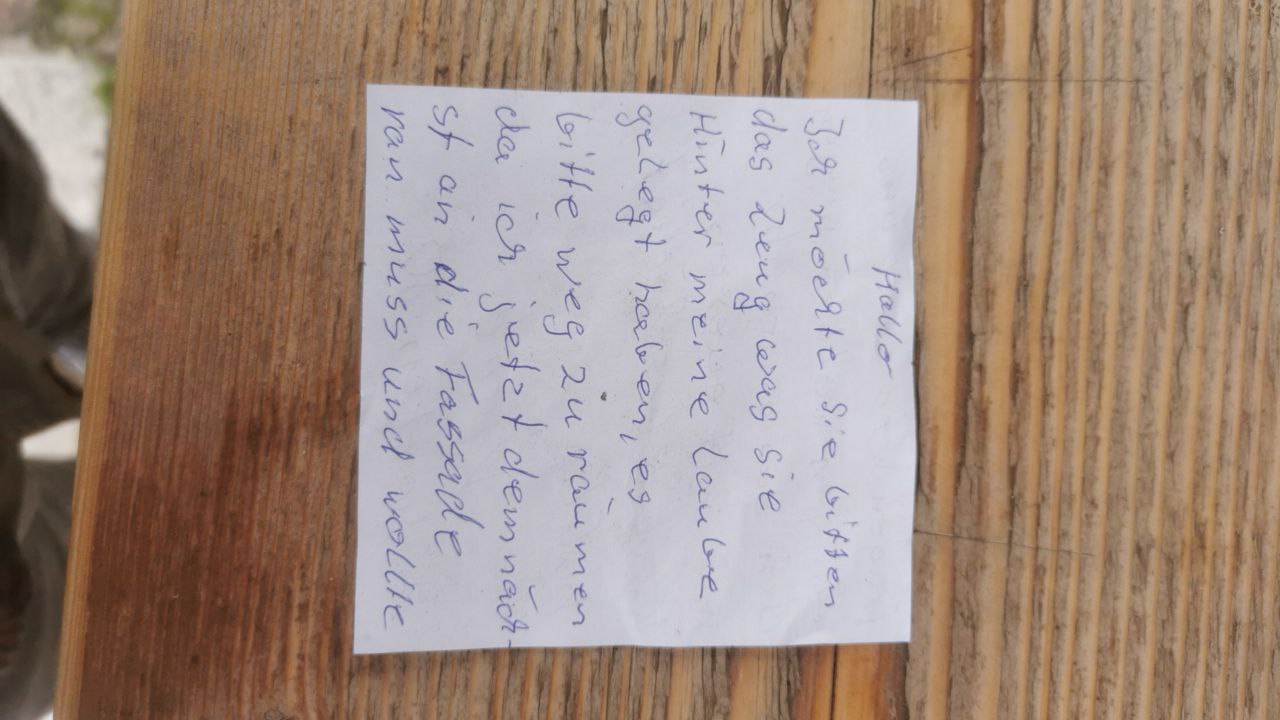 Hallo
Ich möchte Sie bitten
das Zeug was Sie
Hinter meine Laube
gelegt haben, es
bitte weg zu räumen
da ich jetzt demnäch-
st an die Fassade
ran muss und wollte